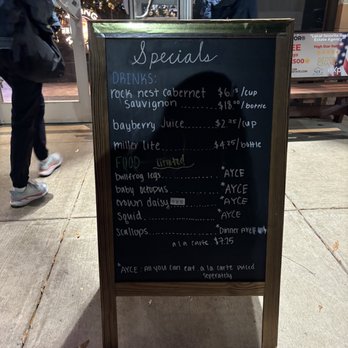 Specials
DRINKS:
rock nest cabernet $6.75/cup
Sauvignon........$18.00/bottle
bayberry juice....$2.75/cup
miller lite.......$4.25/bottle
FOOD limited
bullfrog legs.........*AYCE
baby octopus.........*AYCE
crown daisy.........*AYCE
squid.........*AYCE
scallops.........*Dinner AYCE only
a la carte $7.25
*AYCE: All you can eat, a la carte priced
seperately